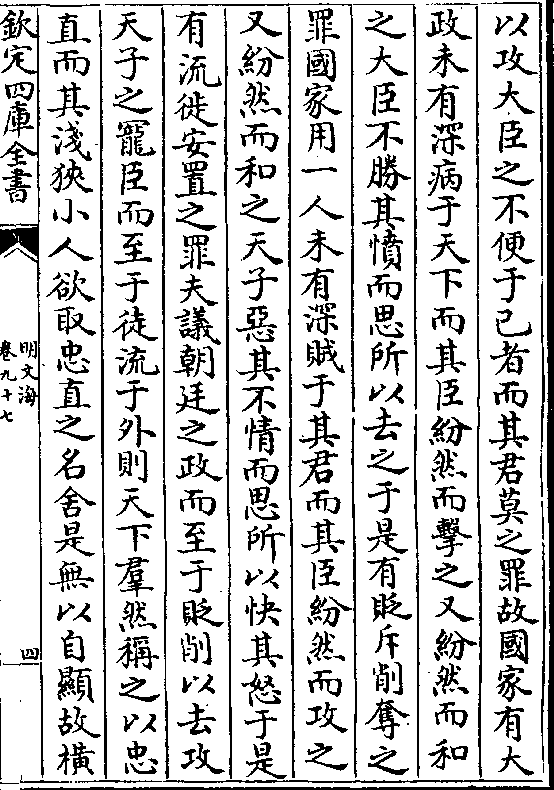 以攻大臣之不便于己者而其君莫之罪故國家有大
政未有深病于天下而其臣紛然而擊之又紛然而和
之大臣不勝其憤而思所以去之于是有貶斥削奪之
罪國家用一人未有深賊于其君而其臣紛然而攻之
又紛然而和之天子惡其不情而思所以快其怒于是
有流徙安置之罪夫議朝廷之政而至于貶削以去攻
天子之寵臣而至于徒流于外則天下羣然稱之以忠
直而其淺狹小人欲取忠直之名舍是無以自顯故橫
欽定四庫全書
明文海
卷九十七
四